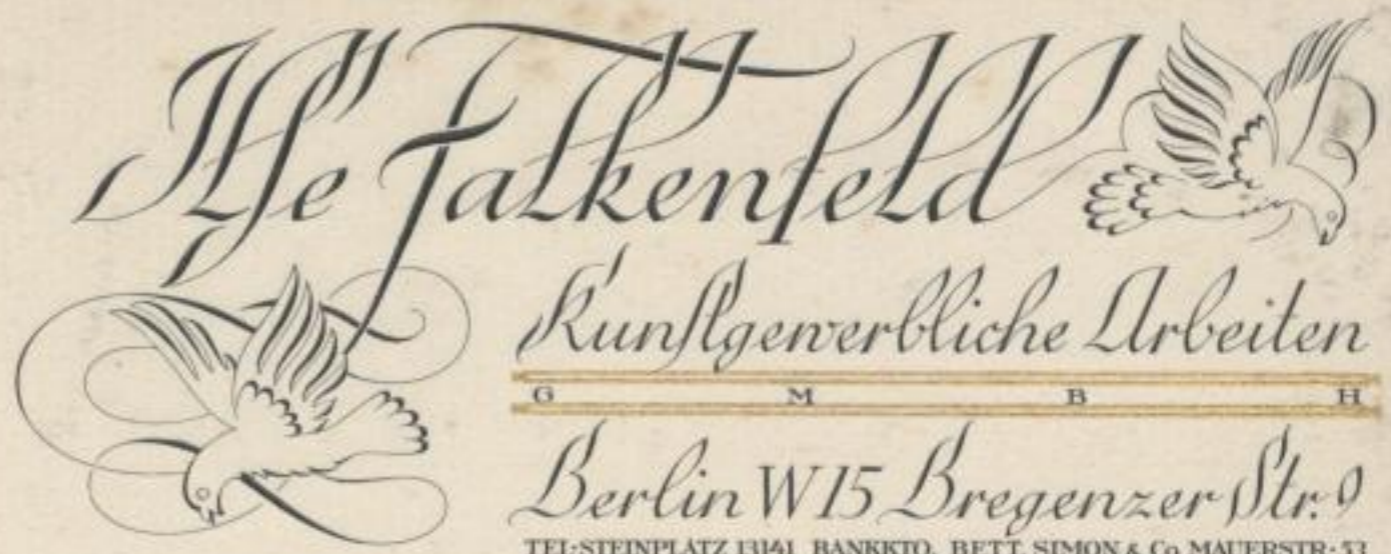 Ilse Falkenfeld
Kunstgewerbliche Arbeiten
G M B H
Berlin W15 Bregenzer Str. 9
TEL: STEINPLATZ 13141 BANKKTO. BETT SIMON & Co MAUERSTR. 53